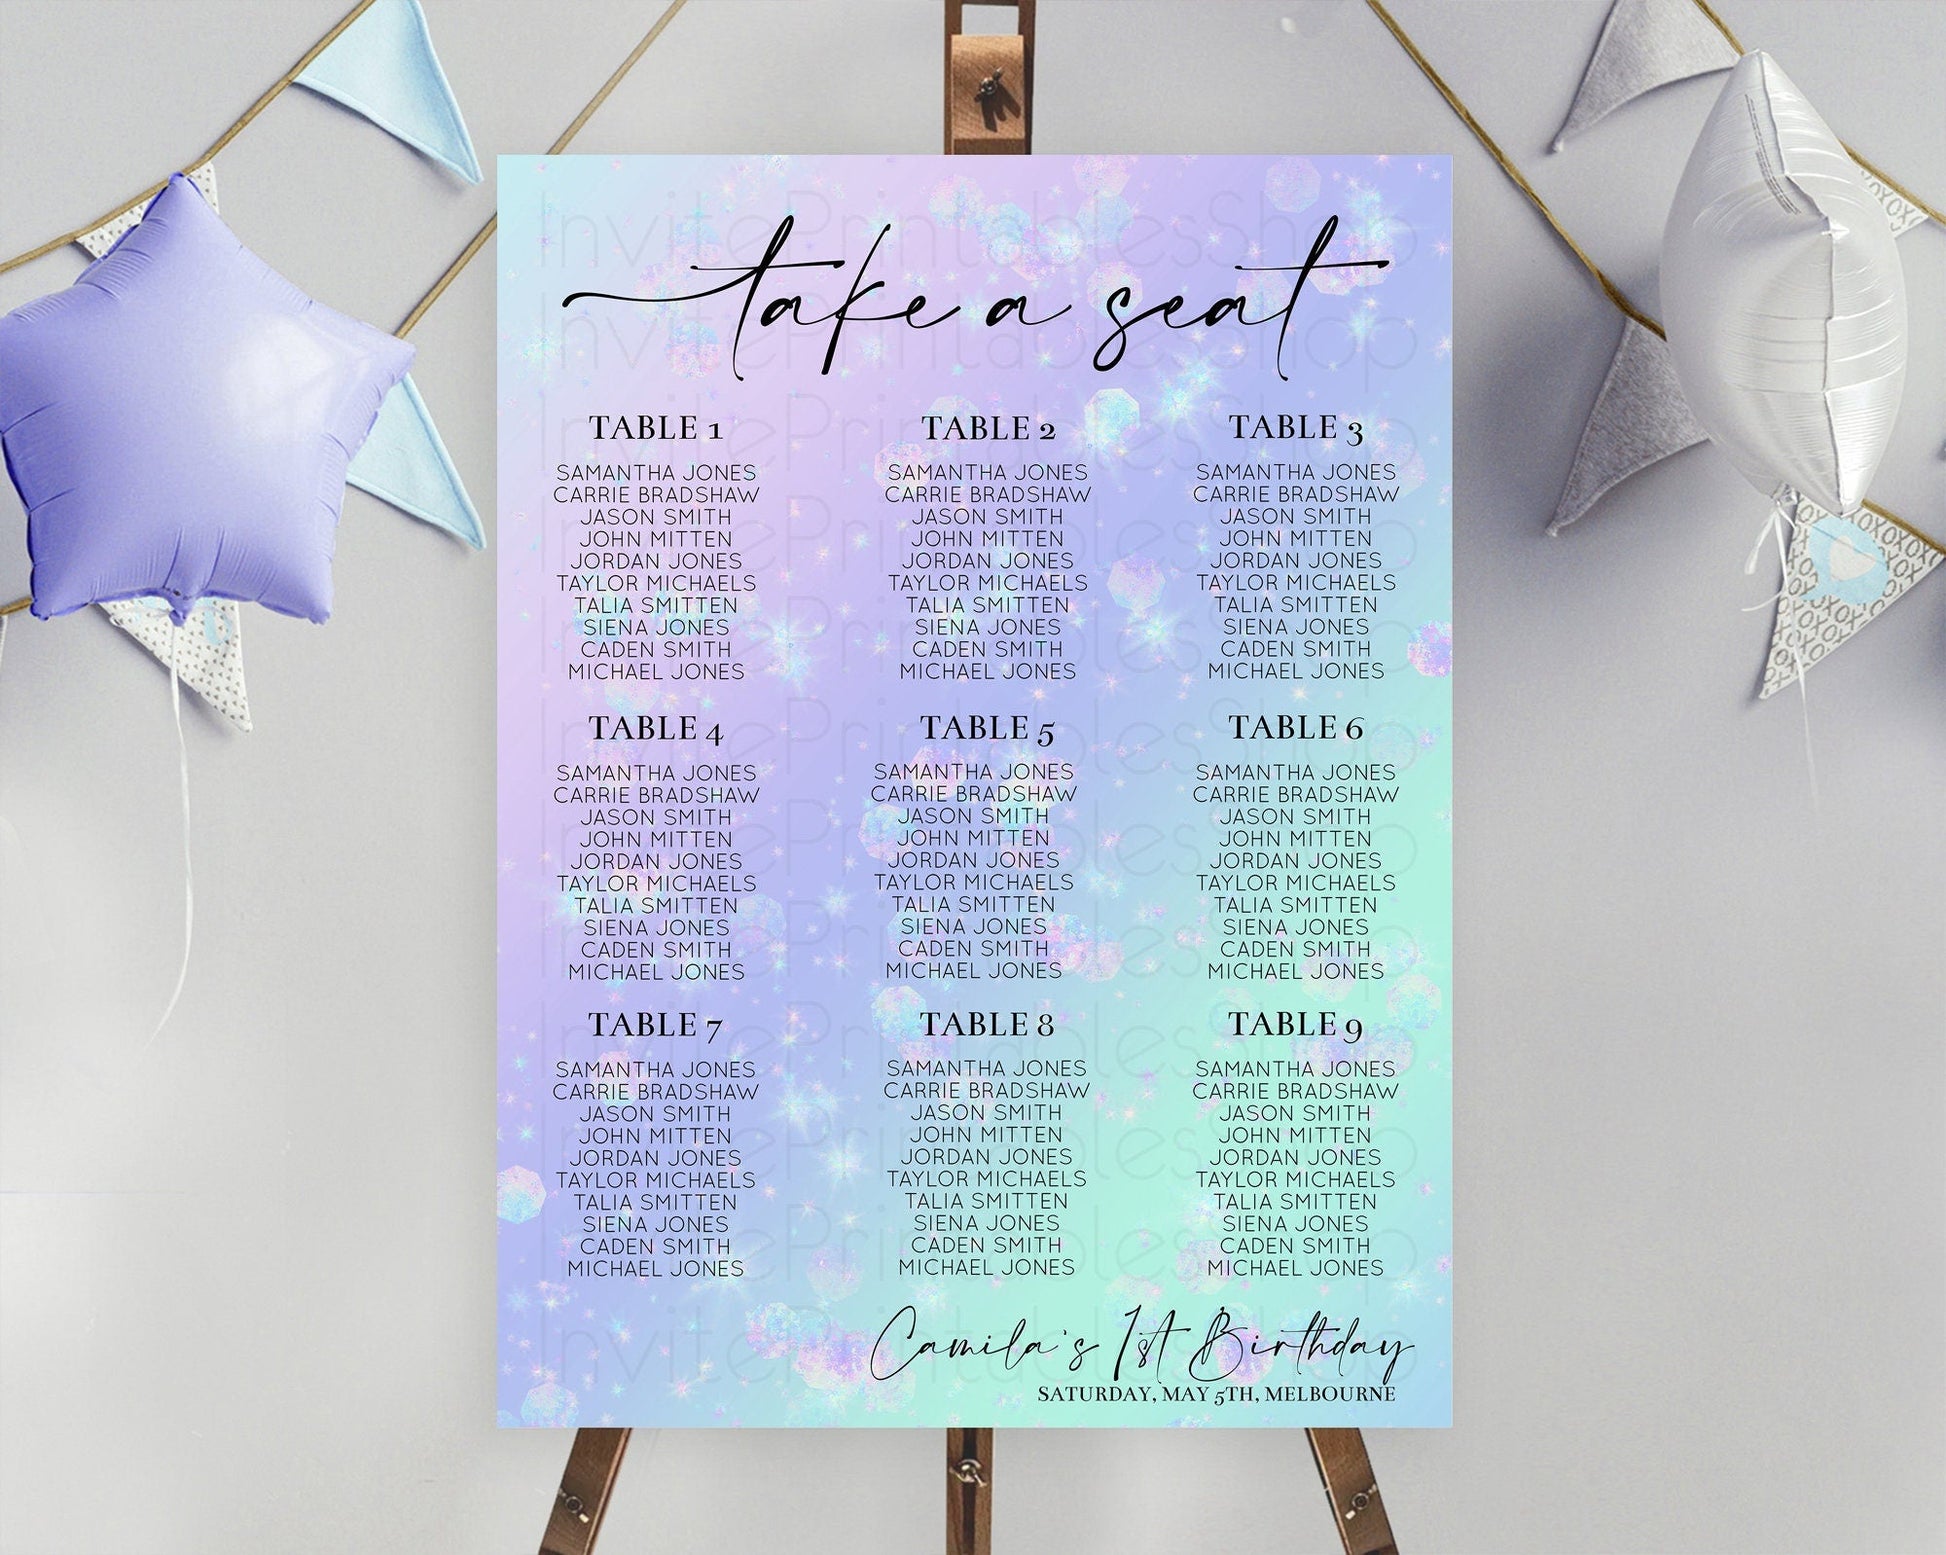 take a seat
TABLE 1
SAMANTHA JONES
CARRIE BRADSHAW
JASON SMITH
JOHN MITTEN
JORDAN JONES
TAYLOR MICHAELS
TALIA SMITTEN
SIENA JONES
CADEN SMITH
MICHAEL JONES
TABLE 2
SAMANTHA JONES
CARRIE BRADSHAW
JASON SMITH
JOHN MITTEN
JORDAN JONES
TAYLOR MICHAELS
TALIA SMITTEN
SIENA JONES
CADEN SMITH
MICHAEL JONES
TABLE 3
SAMANTHA JONES
CARRIE BRADSHAW
JASON SMITH
JOHN MITTEN
JORDAN JONES
TAYLOR MICHAELS
TALIA SMITTEN
SIENA JONES
CADEN SMITH
MICHAEL JONES
TABLE 4
SAMANTHA JONES
CARRIE BRADSHAW
JASON SMITH
JOHN MITTEN
JORDAN JONES
TAYLOR MICHAELS
TALIA SMITTEN
SIENA JONES
CADEN SMITH
MICHAEL JONES
TABLE 5
SAMANTHA JONES
CARRIE BRADSHAW
JASON SMITH
JOHN MITTEN
JORDAN JONES
TAYLOR MICHAELS
TALIA SMITTEN
SIENA JONES
CADEN SMITH
MICHAEL JONES
TABLE 6
SAMANTHA JONES
CARRIE BRADSHAW
JASON SMITH
JOHN MITTEN
JORDAN JONES
TAYLOR MICHAELS
TALIA SMITTEN
SIENA JONES
CADEN SMITH
MICHAEL JONES
TABLE 7
SAMANTHA JONES
CARRIE BRADSHAW
JASON SMITH
JOHN MITTEN
JORDAN JONES
TAYLOR MICHAELS
TALIA SMITTEN
SIENA JONES
CADEN SMITH
MICHAEL JONES
TABLE 8
SAMANTHA JONES
CARRIE BRADSHAW
JASON SMITH
JOHN MITTEN
JORDAN JONES
TAYLOR MICHAELS
TALIA SMITTEN
SIENA JONES
CADEN SMITH
MICHAEL JONES
TABLE 9
SAMANTHA JONES
CARRIE BRADSHAW
JASON SMITH
JOHN MITTEN
JORDAN JONES
TAYLOR MICHAELS
TALIA SMITTEN
SIENA JONES
CADEN SMITH
MICHAEL JONES
Camila's 1st Birthday
SATURDAY, MAY 5TH, MELBOURNE
InvitePrintablesShop